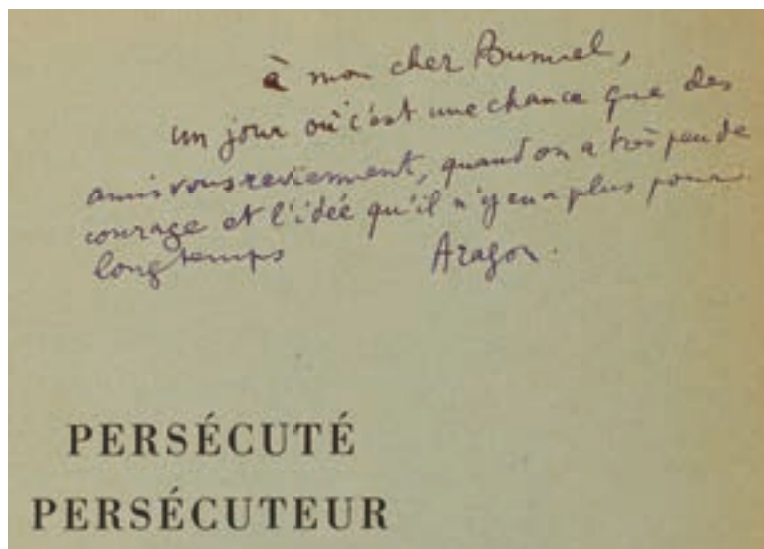 à mon cher Bunuel,
un jour où c'est une chance que des
amis vous reviennent, quand on a très peu de
courage et l'idée qu'il n'y en a plus pour
longtemps
Aragon.
PERSÉCUTÉ
PERSÉCUTEUR